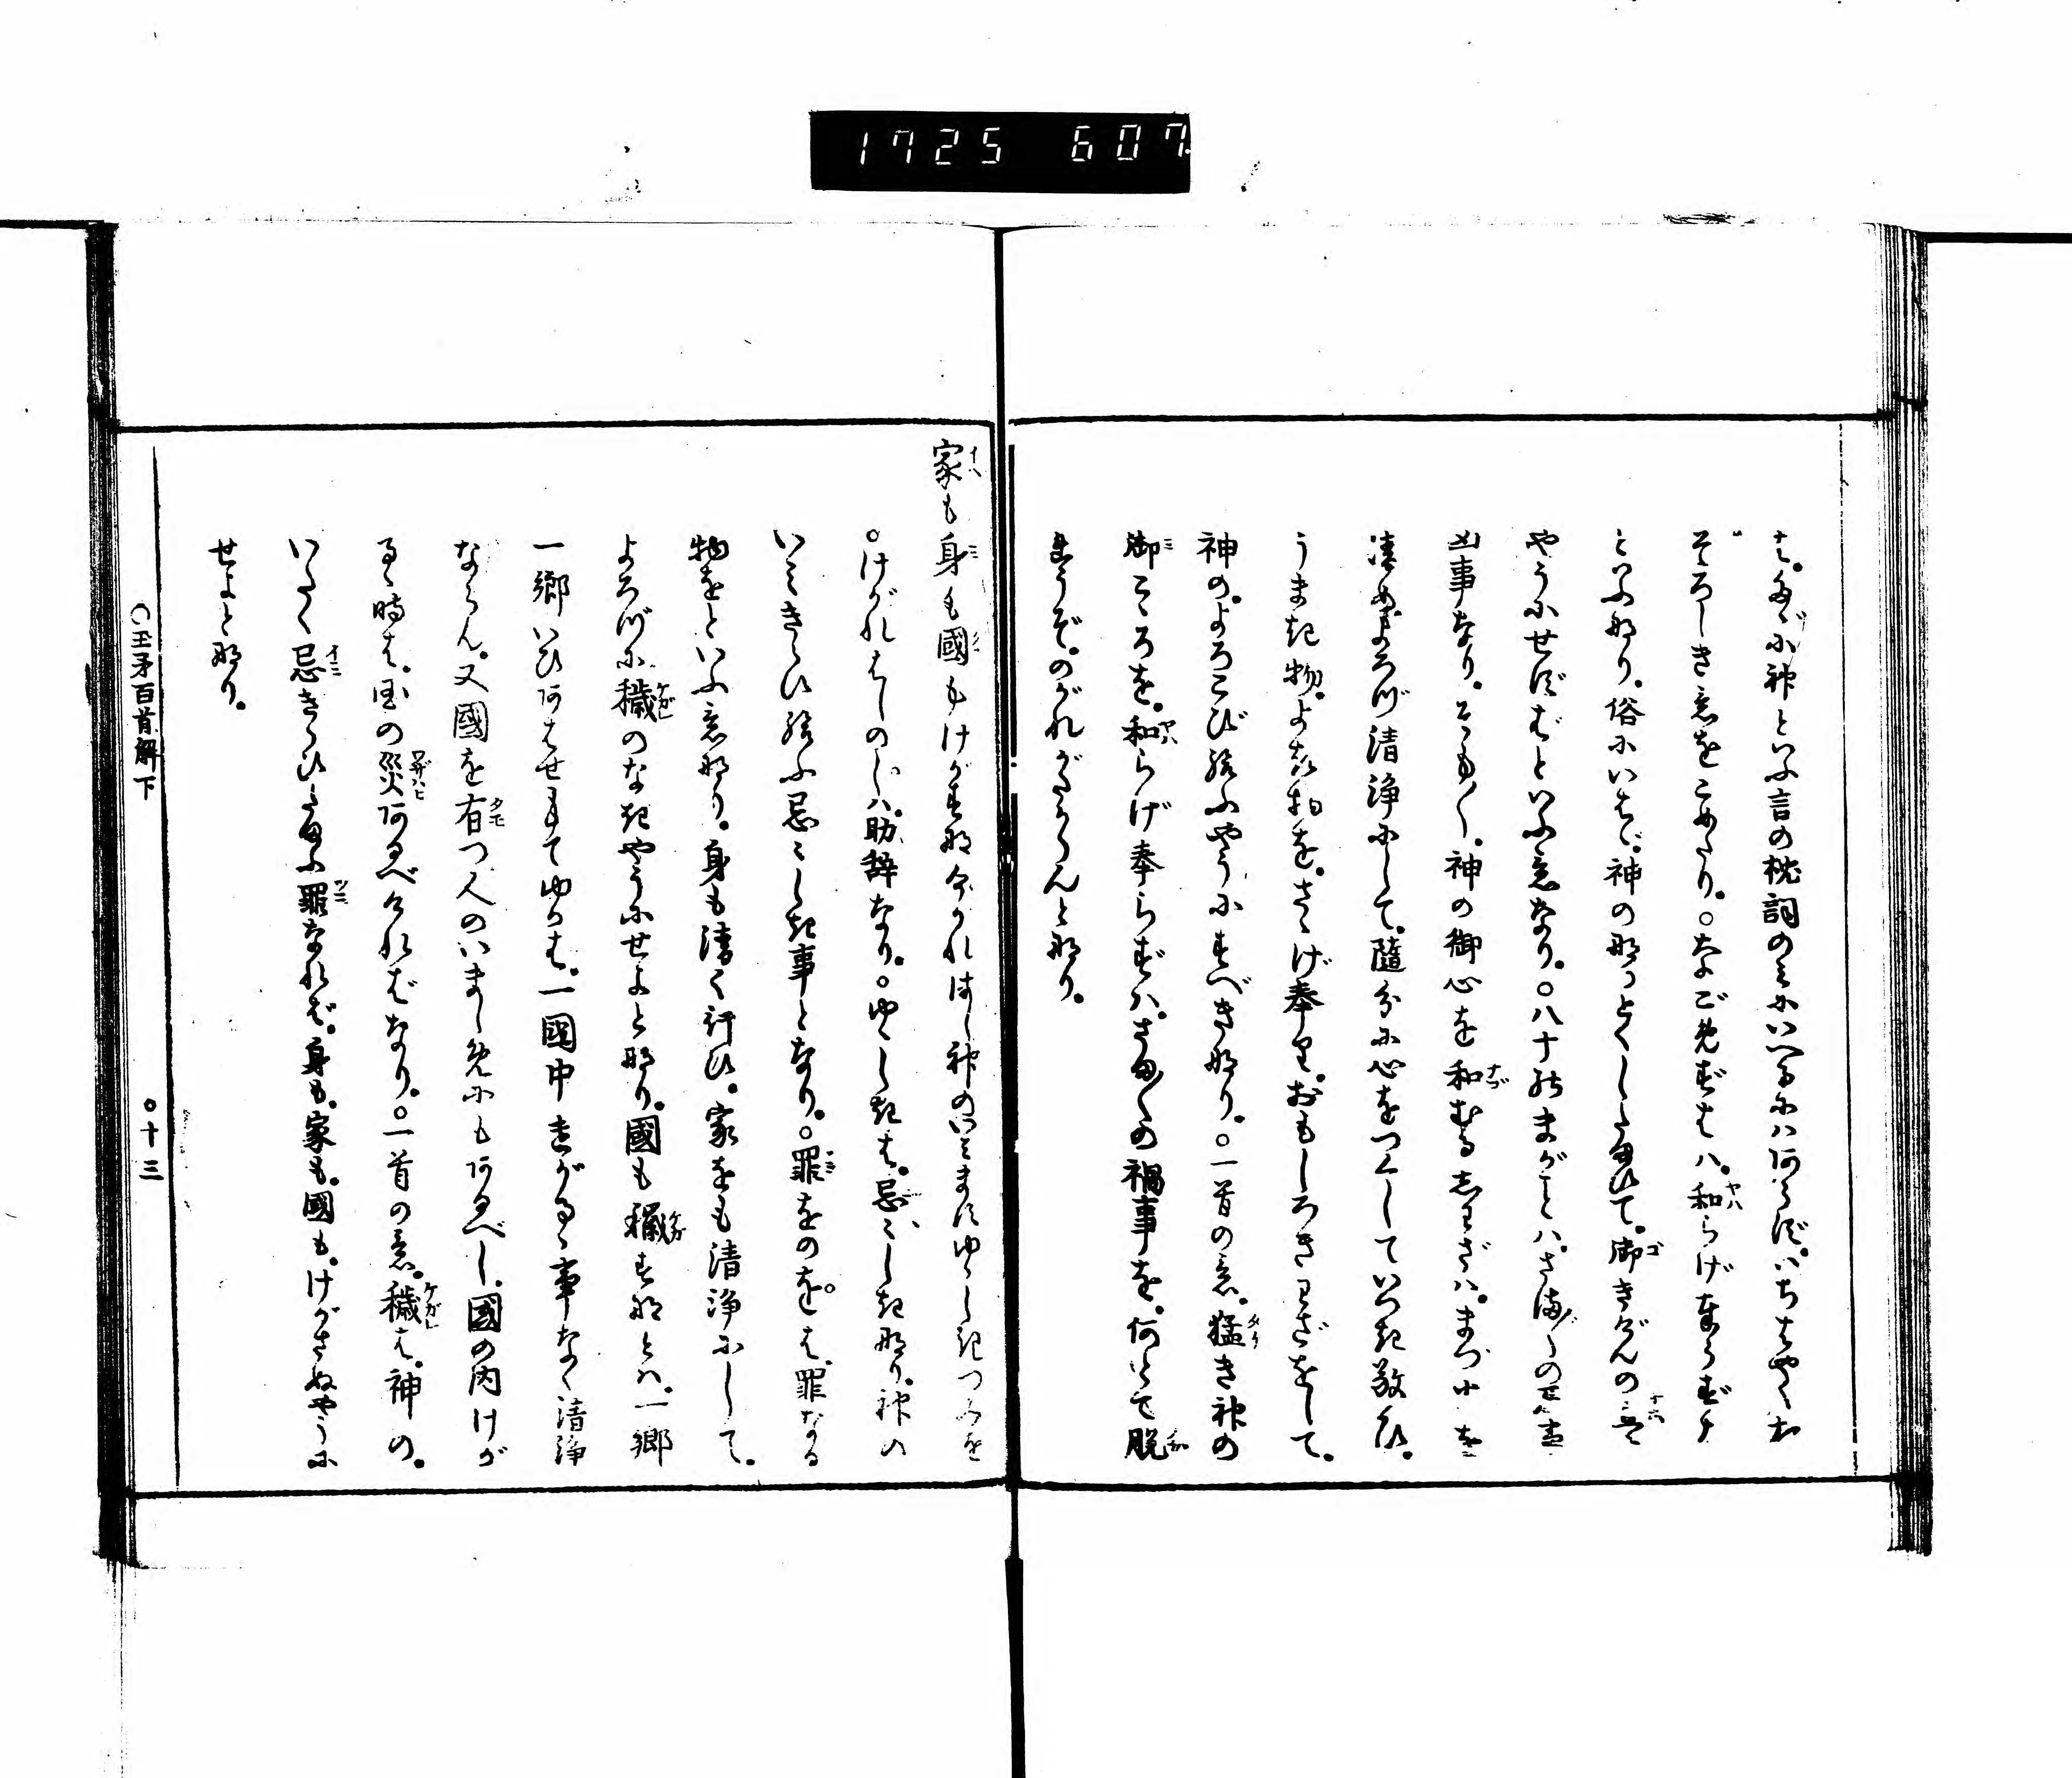 1725 607
は。たゞに神といふ言の枕詞のみにいへるにハあらず。いちはやくお
そろしき意をこめたり。○なごめずはハ。和らげ奉らずナ
といふ也り。俗にいはゞ。神の也っとくしたまひて。御きげんの
やうにせずばといふ意なり。○八十のまがことハ。さま〴〵の
凶事なり。そも〳〵。神の御心を和むるわざハ。まづ
清めよろづ清浄にして。随分に心をつくしていつき敬ひ。
うまき物。よき物を。さゝげ奉り。おもしろきわざをして。
神の。よろこび給ふやうにすべき也り。○一首の意。猛き神の
御こゝろを。和らげ奉らずハ。さま〴〵の禍事を。何とて脱
まうぞ。のがれがたからんと也り。
家も身も國もけがすなけがれはし神のいみますゆゝしきつみを
○けがれはしのしハ。助辞なり。○ゆゝしきは。忌々しき也り。神の
いみきらひ給ふ忌々しき事となり。○罪をのをは。罪なる
物をといふ意也り。身も清く行ひ。家をも清浄にして。
よろづに穢のなきやうにせよと也り。國も穢すなとハ。一郷
一郷いひあはせもてゆかは。一國中けがるゝ事なく清浄
ならん。又國を有つ人のいましめにもあるべし。國の内けが
るゝ時は。国の災あるべければなり。○一首の意。穢は。神の。
いたく忌きらひたまふ罪なれば。身も。家も。國も。けがさぬやうに
せよと也り。
○玉矛百首解下
○十三